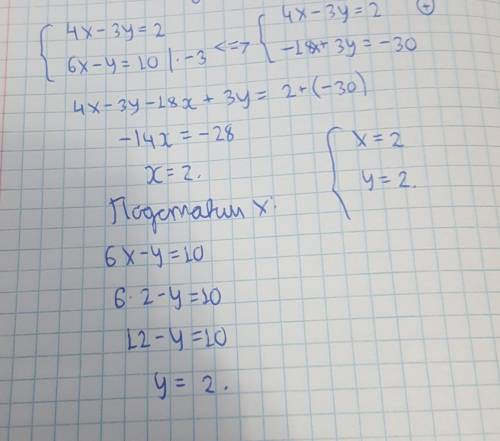 4x-3y=2
6x-y=10 |·-3 <=>
4x-3y=2 +
-18x+3y=-30
4x-3y-18x+3y=2+(-30)
-14x=-28
x=2.
Подставим x:
6x-y=10
6·2-y=10
12-y=10
y=2.
x=2
y=2.